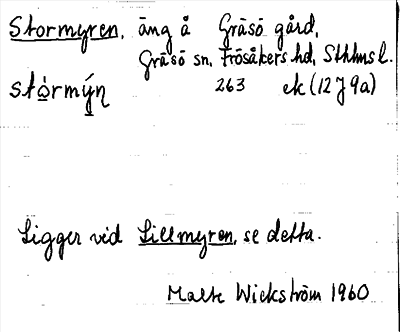 Stormyren, äng å Gräsö gård,
Gräsö sn, Frösåkers hd, Sthlms l.
stòrmýn 263 ek (12 J 9a)
Ligger vid Lillmyren, se detta.
Malte Wickström 1960